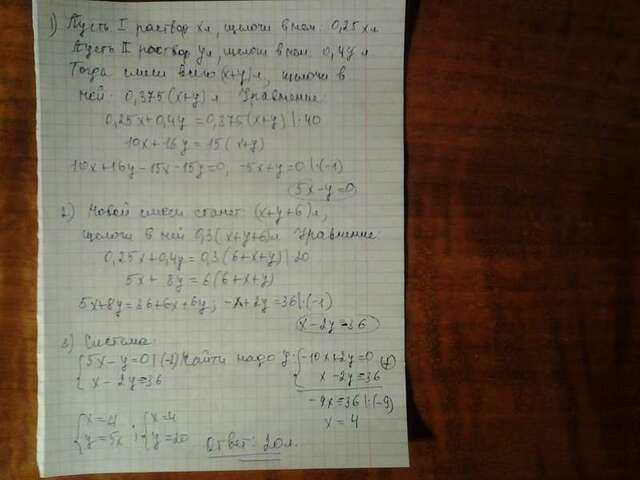 1) Пусть I раствор x л, щелочи в нем: 0,25x л
Пусть II раствор y л, щелочи в нем: 0,4y л
Тогда смеси всего (x+y) л, щелочи в
ней: 0,375(x+y) л Уравнение:
0,25x+0,4y=0,375(x+y) |·40
10x+16y=15(x+y)
10x+16y-15x-15y=0, -5x+y=0 |·(-1)
5x-y=0
2) Новой смеси станет (x+y+6) л,
щелочи в ней 0,3(x+y+6) л Уравнение:
0,25x+0,4y=0,3(6+x+y) |20
5x+8y=6(6+x+y)
5x+8y=36+6x+6y; -x+2y=36 |·(-1)
x-2y=36
3) Система:
{5x-y=0 |(-2) Найти надо y: {-10x+2y=0 (+)
x-2y=36 x-2y=36
-9x=36 |:(-9)
x=4
{x=4 ; {x=4
y=5x y=20 Ответ: 20л.